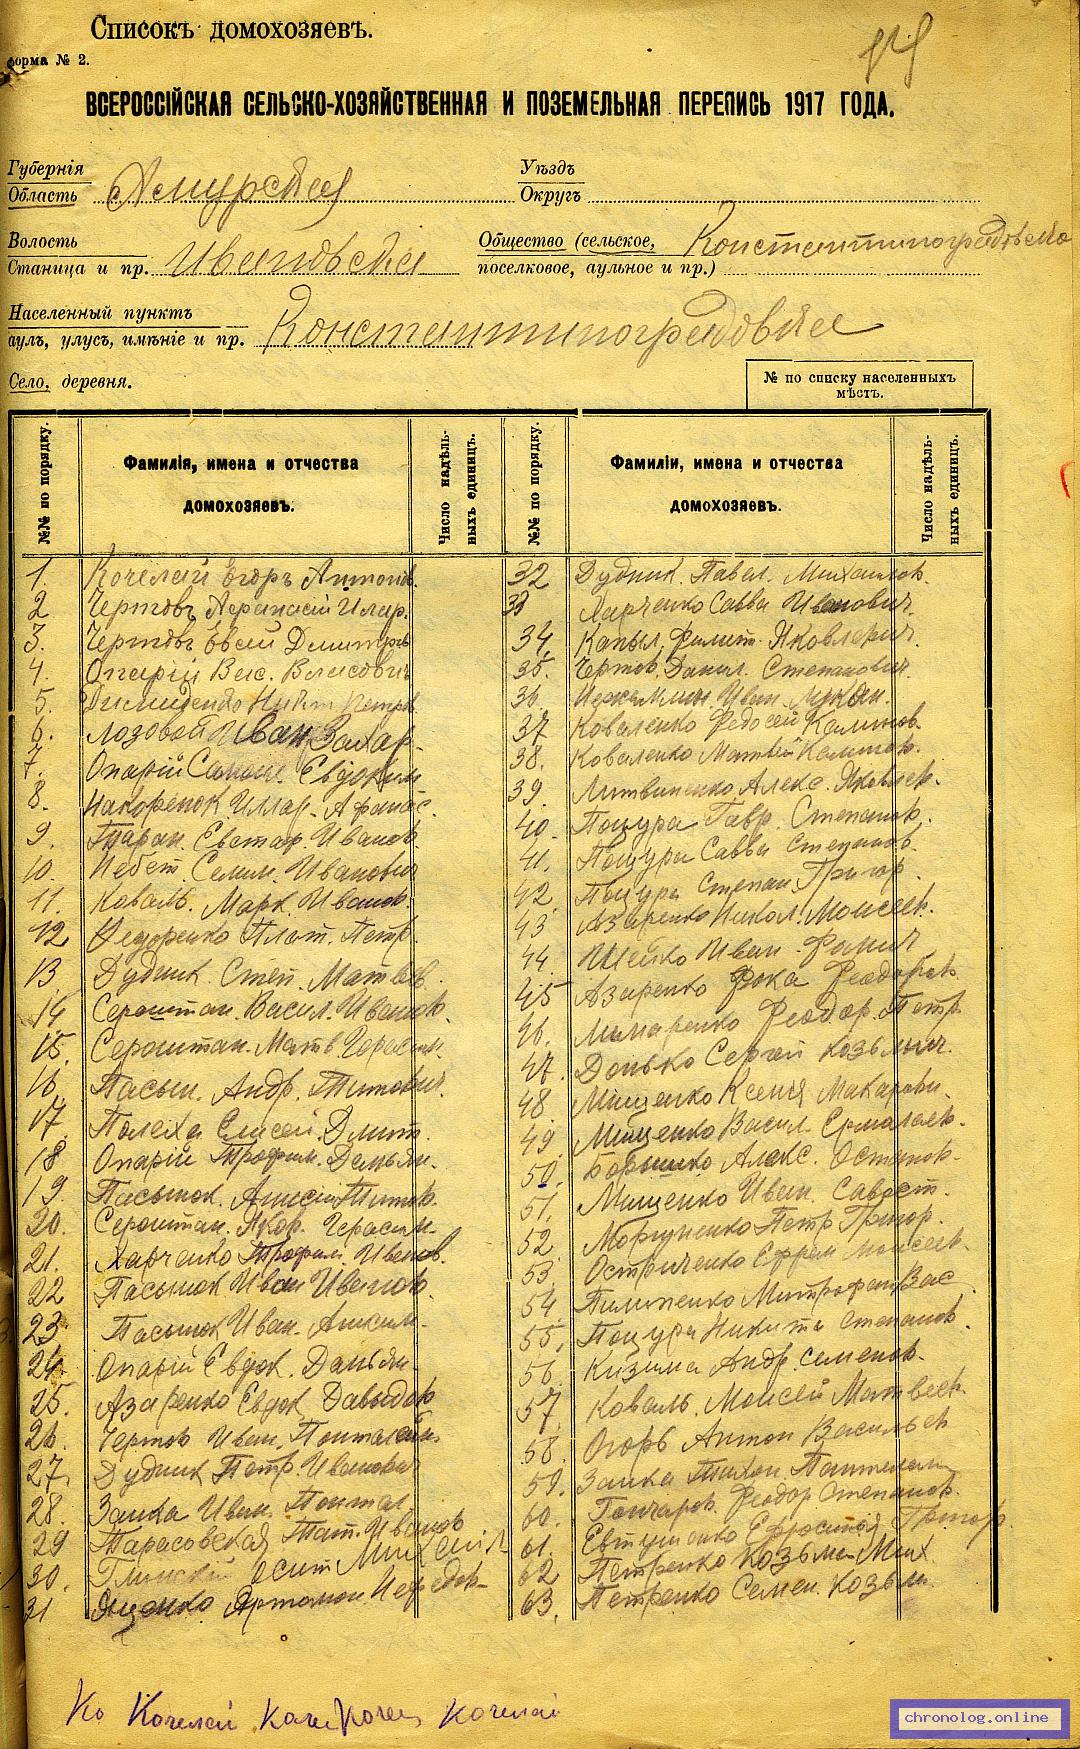 Списокъ домохозяевъ.
форма № 2.
ВСЕРОССІЙСКАЯ СЕЛЬСКО-ХОЗЯЙСТВЕННАЯ И ПОЗЕМЕЛЬНАЯ ПЕРЕПИСЬ 1917 ГОДА.
Губернія
Область Амурская
Уѣздъ
Округъ
Волость
Станица и пр. Ивановская
Общество (сельское, Константиноградовско
поселковое, аульное и пр.)
Населенный пунктъ
аулъ, улусъ, имѣніе и пр. Константиноградовка
Село, деревня.
№ по списку населенныхъ
мѣстъ.
№№ по порядку.
Фамилія, имена и отчества
домохозяевъ.
Число надѣль-
ныхъ единицъ.
№№ по порядку.
Фамиліи, имена и отчества
домохозяевъ.
Число надѣль-
ныхъ единицъ.
1. Кочелай Егоръ Антонов.
2 Чертовъ Афанасій Илар.
3. Чертовъ Евсей Дмитрев
4. Опарій Вас. Власович
5. Никит Петров
6. Лозовой Иван Захар.
7. Опарій Евдоким
8. Накоренок Иллар. Афанас.
9. Таран. Евстар. Иванов.
10. Небет. Семин. Иванович
11. Коваль. Марк. Иванов.
12 Федоренко Плат. Петр.
13. Дудник. Степ. Матвев.
14. Сероштан. Васил. Иванов.
15. Сероштан. Матв Герасим.
16. Пасын. Андр. Титович.
17. Полеха Елисей. Дмит.
18 Опарій Трофим. Демьян.
19. Пасынок. Титов.
20. Сероштан. Герасим.
21. Харченко Трофим. Иванов.
22 Пасынок Иван Иванов.
23 Пасынок Иван. Аксим.
24. Опарій Евдок. Дамьян.
25. Азаренко Евдок. Давыдов
26. Чертов Иван. Понталей.
27. Дудник Петр. Иванович
28. Заика Иван. Понтал.
29 Тарасовская Тат. Иванов
30. Глинский Осип Михайл
31 Яценко Артамон Нефедов-
32 Дудник. Павел. Михайлов.
33 Харченко Савва Иванович.
34. Капыл Филип. Яковлевич.
35. Чертов. Данил. Степанович.
36. Иван. Лукьян.
37 Коваленко Федосей Калинов.
38. Коваленко Матвей Калинов.
39. Литвиненко Алекс. Яковлев.
40. Поцура Гавр. Степанов.
41. Поцура Савва Степанов.
42. Поцура Степан. Григор.
43 Азаренко Никол. Моисеев.
44. Шейко Иван Фомич
45 Азаренко Фока Феодоров
46. Макаренко Феодор. Петр.
47. Донько Сергей Козьмич.
48 Мищенко Ксения Макарови.
49. Мищенко Васил Ермолаев.
50. Алекс. Остапов.
51. Мищенко Иван. Савост.
52. Петр Григор.
53. Остриченко Ефрем Моисеев.
54. Пилипенко Митрофан Вас
55. Поцура Никита Степанов.
56. Кизима Андр. Семенов.
57. Коваль. Моисей Матвеев.
58. Огорь Антон Васильев
59. Заика Тихон. Пантелем
60. Гончаров. Феодор Степанов.
61. Евтушенко Ефросинья Григор
62 Петренко Козьма Мих
63. Петренко Семен. Козьм.
Ко Кочелай Коче Кочел Кочелай
chronolog.online